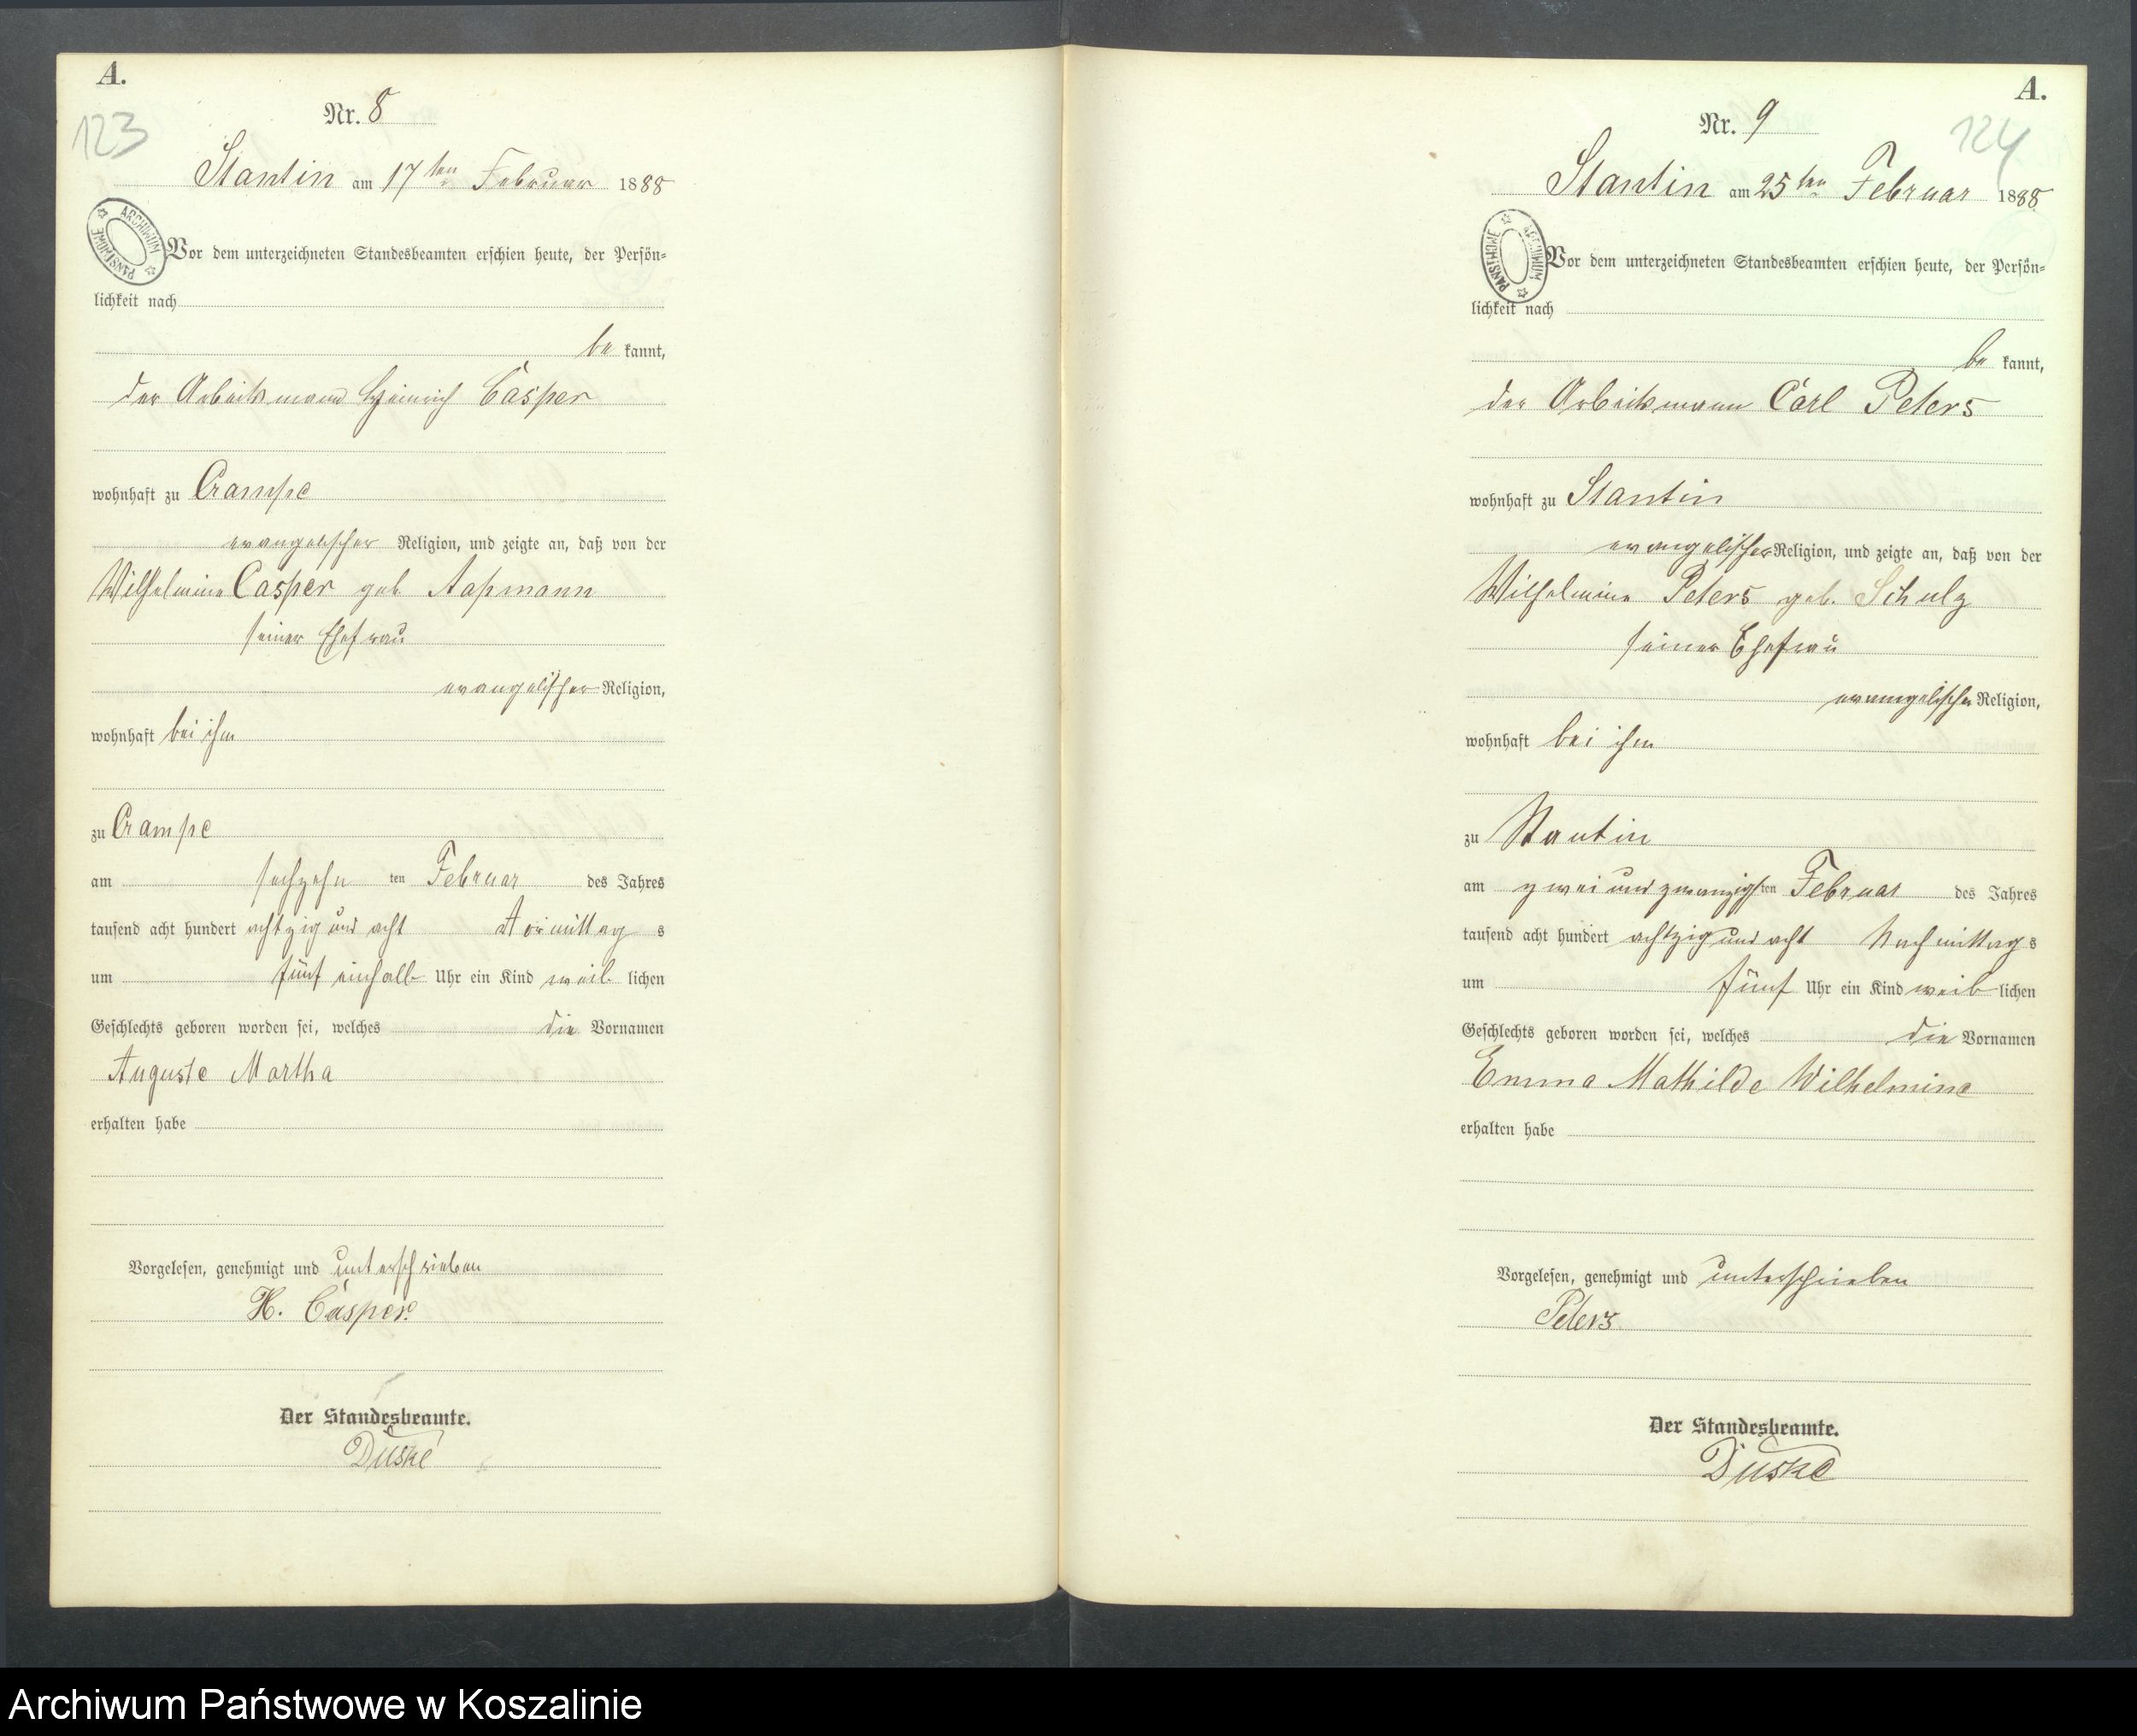 A.
123
Nr. 8
Stantin am 17ten Februar 1888
ARCHIWUM PAŃSTWOWE
Vor dem unterzeichneten Standesbeamten erschien heute, der Persön-
lichkeit nach
be kannt,
der Arbeitsmann Heinrich Casper
wohnhaft zu Crampe
evangelischer Religion, und zeigte an, daß von der
Wilhelmine Casper geb. Aßmann
seiner Ehefrau
evangelischer Religion,
wohnhaft bei ihm
zu Crampe
am sechzehn ten Februar des Jahres
tausend acht hundert achtzig und acht Vormittag s
um fünf einhalb Uhr ein Kind weib lichen
Geschlechts geboren worden sei, welches die Vornamen
Auguste Martha
erhalten habe
Vorgelesen, genehmigt und unterschrieben
H. Casper.
Der Standesbeamte.
Duske
A.
124
Nr. 9
Stantin am 25ten Februar 1888
ARCHIWUM PAŃSTWOWE
Vor dem unterzeichneten Standesbeamten erschien heute, der Persön-
lichkeit nach
be kannt,
der Arbeitsmann Carl Peters
wohnhaft zu Stantin
evangelischer Religion, und zeigte an, daß von der
Wilhelmine Peters geb. Schulz
seiner Ehefrau
evangelischer Religion,
wohnhaft bei ihm
zu Stantin
am zwei und zwanzigsten Februar des Jahres
tausend acht hundert achtzig und acht Nachmittag s
um fünf Uhr ein Kind weib lichen
Geschlechts geboren worden sei, welches die Vornamen
Emma Mathilde Wilhelmine
erhalten habe
Vorgelesen, genehmigt und unterschrieben
Peters
Der Standesbeamte.
Duske
Archiwum Państwowe w Koszalinie